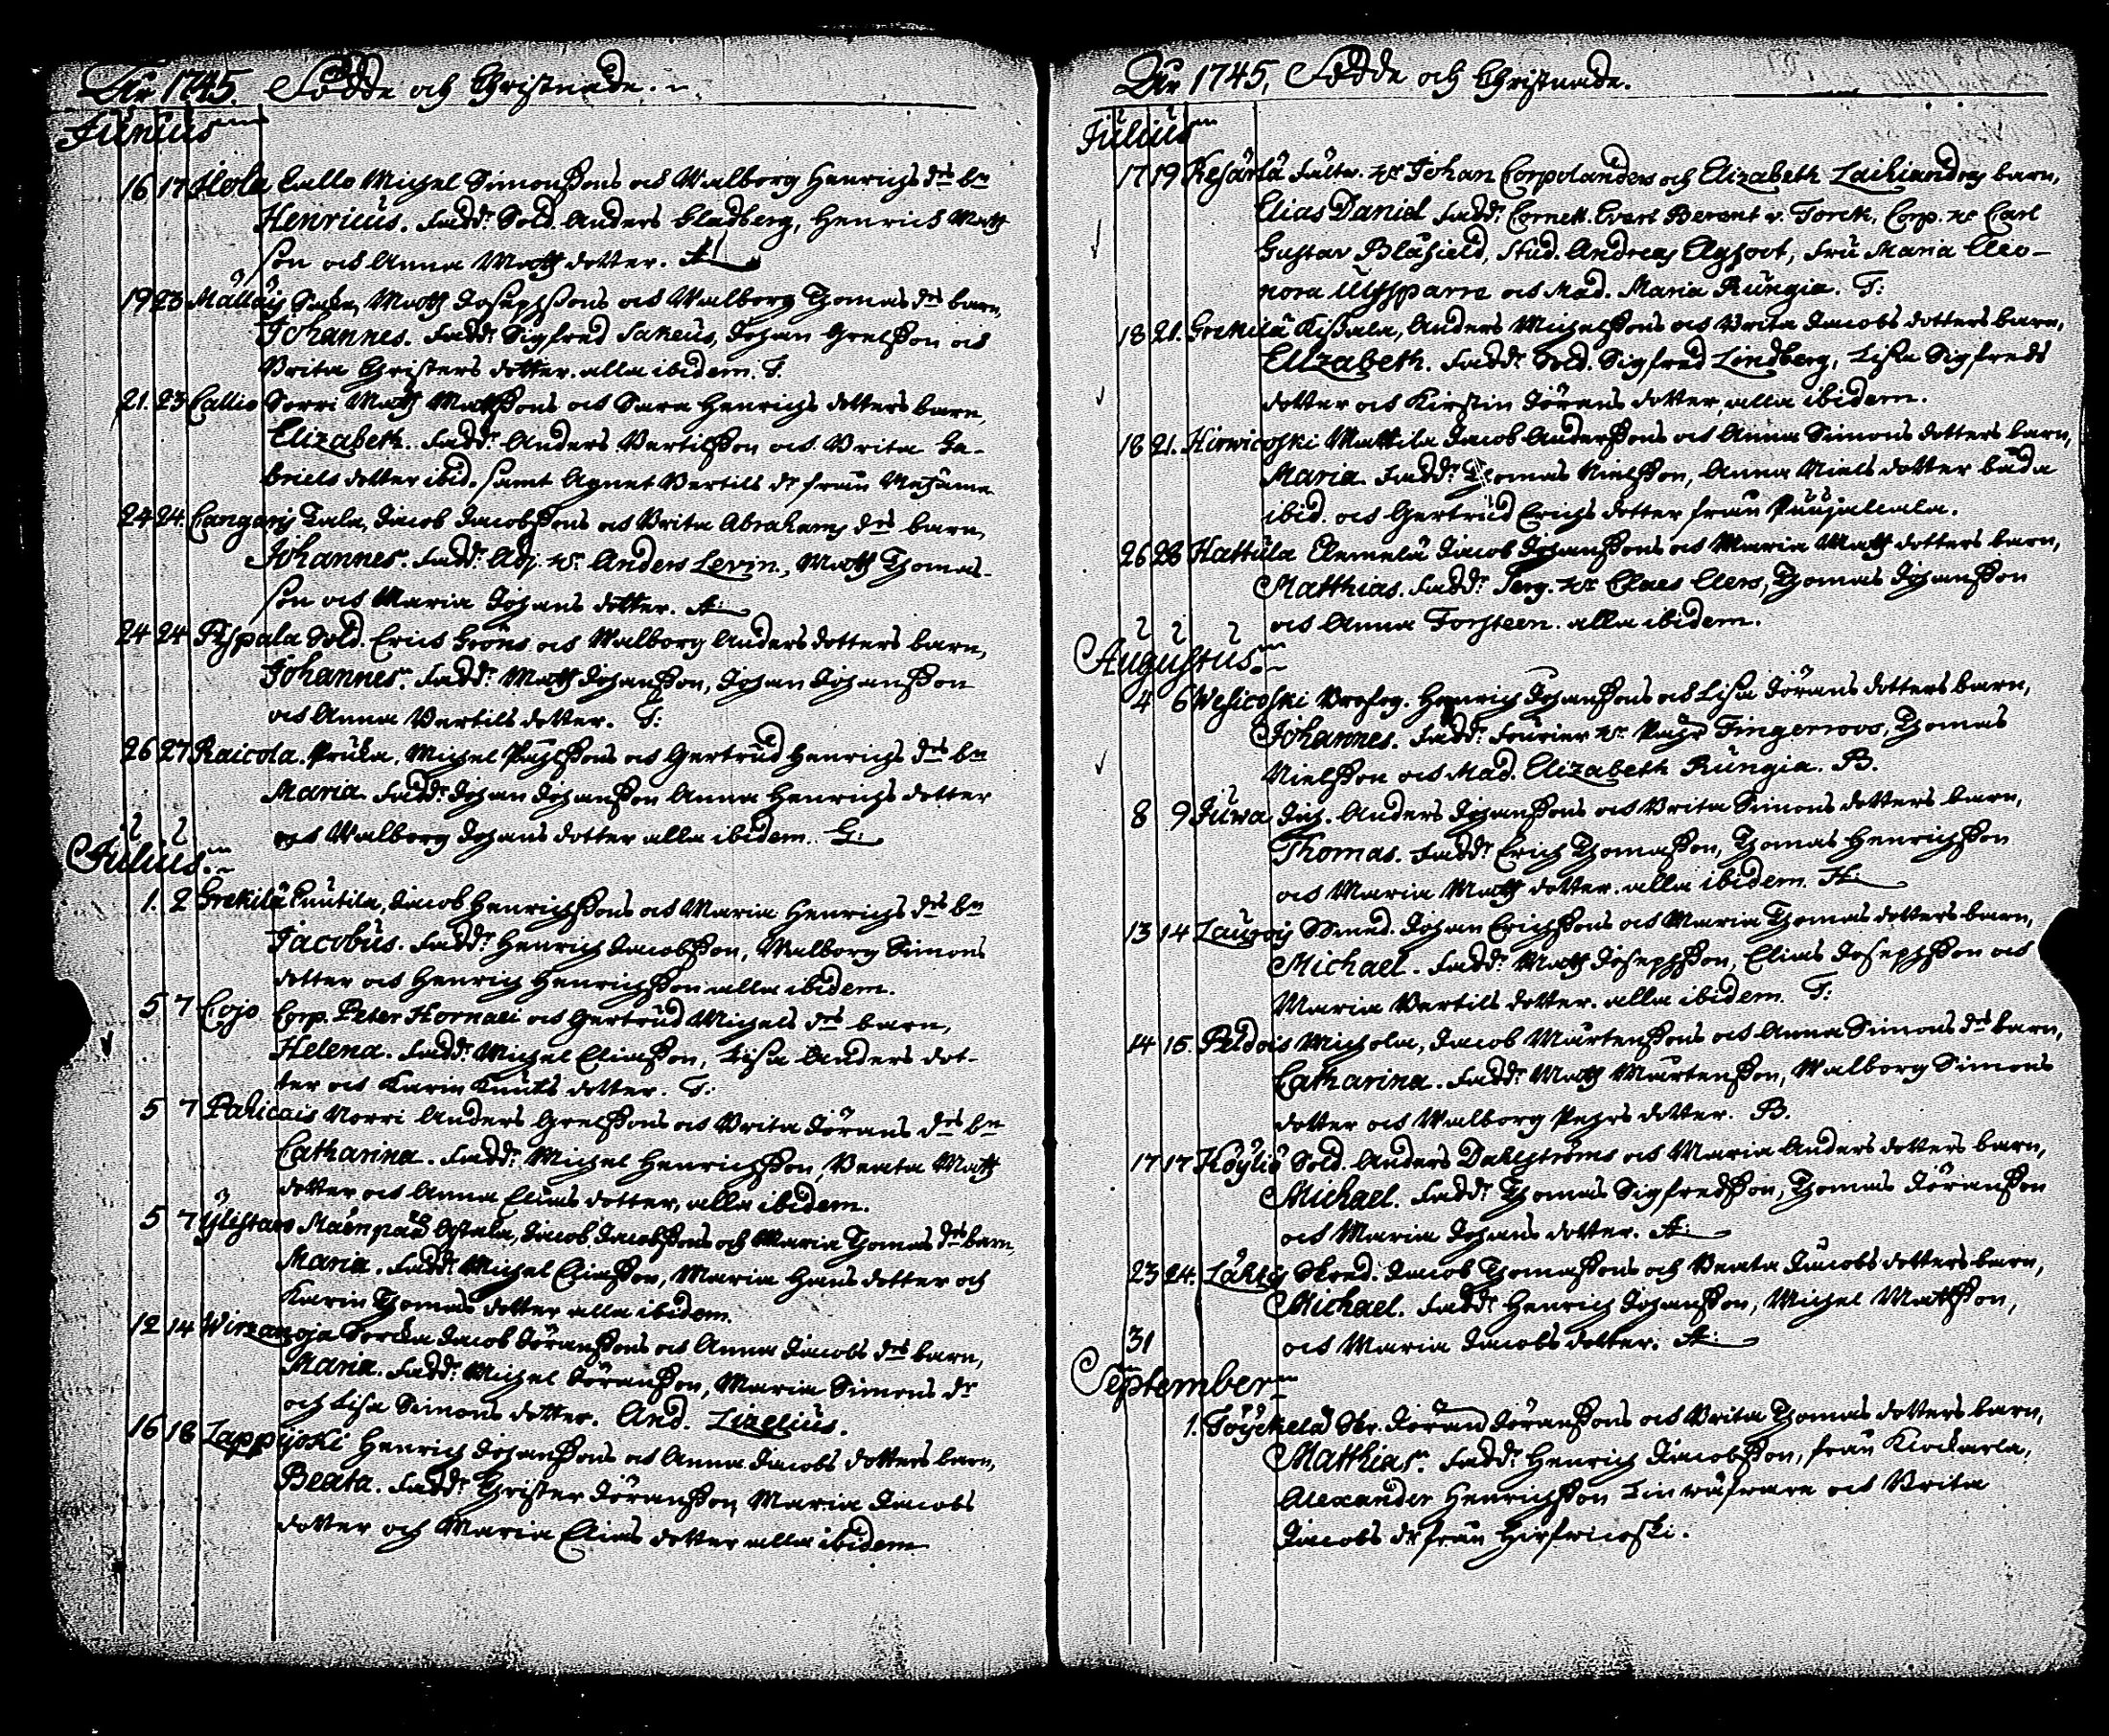 År 1745. Födde och Christnade.
Junius
16 17 Hola Callo Michel Simonssons och Walborg Henrichs drs bn
Henricus. Fadd. Sold. Anders Gladberg, Henrich Matts
son och Anna Matts dotter. H.
19 23 Mällöis Matts Josephssons och Walborg Thomas drs barn,
Johannes. Fadd. Sigfred Sakeus, Johan Grelsson och
Brita Christers dotter. alla ibidem. T.
21. 23 Callio Sorri Matts Mattssons och Sara Henrichs dotters barn,
Elizabeth. Fadd. Anders Bertilsson och Brita Ga-
briels dotter ibid. samt Agnet Bertils dr från
24 24. Cangaris Tala, Jacob Jacobssons och Brita Abrahams drs barn,
Johannes. Fadd. Adj. Hr. Anders Levin, Matts Thomas-
son och Maria Johans dotter. H.
24 24 Pispala Sold. Erich Gröns och Walborg Anders dotters barn,
Johannes. Fadd. Matts Johansson, Johan Johansson
och Anna Bertils dotter. T:
26 27 Raicola. Pruka, Michel Påhlssons och Gertrud Henrichs drs bn
Maria. Fadd. Johan Johansson Anna Henrichs dotter
och Walborg Johans dotter alla ibidem. G.
Julius.
1. 2 Grekilä Puutila, Jacob Henrichssons och Maria Henrichs drs bn
Jacobus. Fadd. Henrich Jacobsson, Walborg Simons
dotter och Henrich Henrichsson alla ibidem.
5 7 Cojo Corp. Peter Hornaei och Gertrud Michels drs barn,
Helena. Fadd. Michel Eliasson, Lisa Anders dot-
ter och Karin Knuts dotter. T:
5 7 Pahicais Norri Anders Grelssons och Brita Jörans drs bn
Catharina. Fadd. Michel Henrichsson, Beata Matts
dotter och Anna Elias dotter, alla ibidem.
5 7 Ylistaro Mäenpää Jacob Jacobssons och Maria Thomas drs barn,
Maria. Fadd. Michel Eliasson, Maria Hans dotter och
Karin Thomas dotter alla ibidem.
12 14 Wirzanoja Sorcka Jacob Jöranssons och Anna Jacobs drs barn,
Maria. Fadd. Michel Jöransson, Maria Simons dr
och Lisa Simons dotter. And. Lizelius.
16 18 Lappijoki Henrich Johanssons och Anna Jacobs dotters barn,
Beata. Fadd. Christer Jöransson, Maria Jacobs
dotter och Maria Elias dotter alla ibidem
År 1745, Födde och Christnade.
Julius
17 19 Kesärlä Fältw. Hr Johan Corpolanders och Elizabeth Laihiandras barn,
Elias Daniel Fadd. Cornett. Evert Berent v. Torck, Corp. Hr Carl
Gustav Blåfield, Stud. Andreas Aghoot, Fru Maria Eleo-
nora Ulfsparre och Mad. Maria Rungia. T:
18 21. Grekilä Kissala, Anders Michelssons och Brita Jacobs dotters barn,
Elizabeth. Fadd. Sold. Sigfred Lindberg, Lisa Sigfreds
dotter och Kirstin Jörans dotter, alla ibidem.
18 21. Hirwicoski Mattila Jacob Anderssons och Anna Simons dotters barn,
Maria. Fadd. Thomas Nielsson, Anna Niels dotter båda
ibid. och Gertrud Erichs dotter från Puujalcala.
26 28 Hattula Clemelä Jacob Johanssons och Maria Matts dotters barn,
Matthias. Fadd. Serg. Hr Claes Clers, Thomas Johansson
och Anna Torsteen. alla ibidem.
Augustus.
4 6 Wesicoski Profog. Henrich Johanssons och Lisa Jörans dotters barn,
Johannes. Fadd. Fourier Hr Pehr Fingerroos, Thomas
Nielsson och Mad. Elizabeth Rungia. B.
8 9 Juwa Inh. Anders Johanssons och Brita Simons dotters barn,
Thomas. Fadd. Erich Thomasson, Thomas Henrichsson
och Maria Matts dotter. alla ibidem. H.
13 14 Laurois Smed. Johan Erichssons och Maria Thomas dotters barn,
Michael. Fadd. Matts Josephsson, Elias Josephsson och
Maria Bertils dotter. alla ibidem. T:
14 15. Peldois Michola, Jacob Mårtenssons och Anna Simons drs barn,
Catharina. Fadd. Matts Mårtensson, Walborg Simons
dotter och Walborg Pehrs dotter. B.
17 17 Köyliö Sold. Anders Dahlströms och Maria Anders dotters barn,
Michael. Fadd. Thomas Sigfredsson, Thomas Jöransson
och Maria Johans dotter. H.
23 24. Lähtis Skred. Jacob Thomassons och Beata Jacobs dotters barn,
Michael. Fadd. Henrich Johansson, Michel Mattsson,
31 och Maria Jacobs dotter. H.
September
1. Töyckelä Skr. Jöran Jöranssons och Brita Thomas dotters barn,
Matthias. Fadd. Henrich Jacobsson, från Kiockarla,
Alexander Henrichsson Linwäfvare och Brita
Jacobs dr från Hirfwicoski.